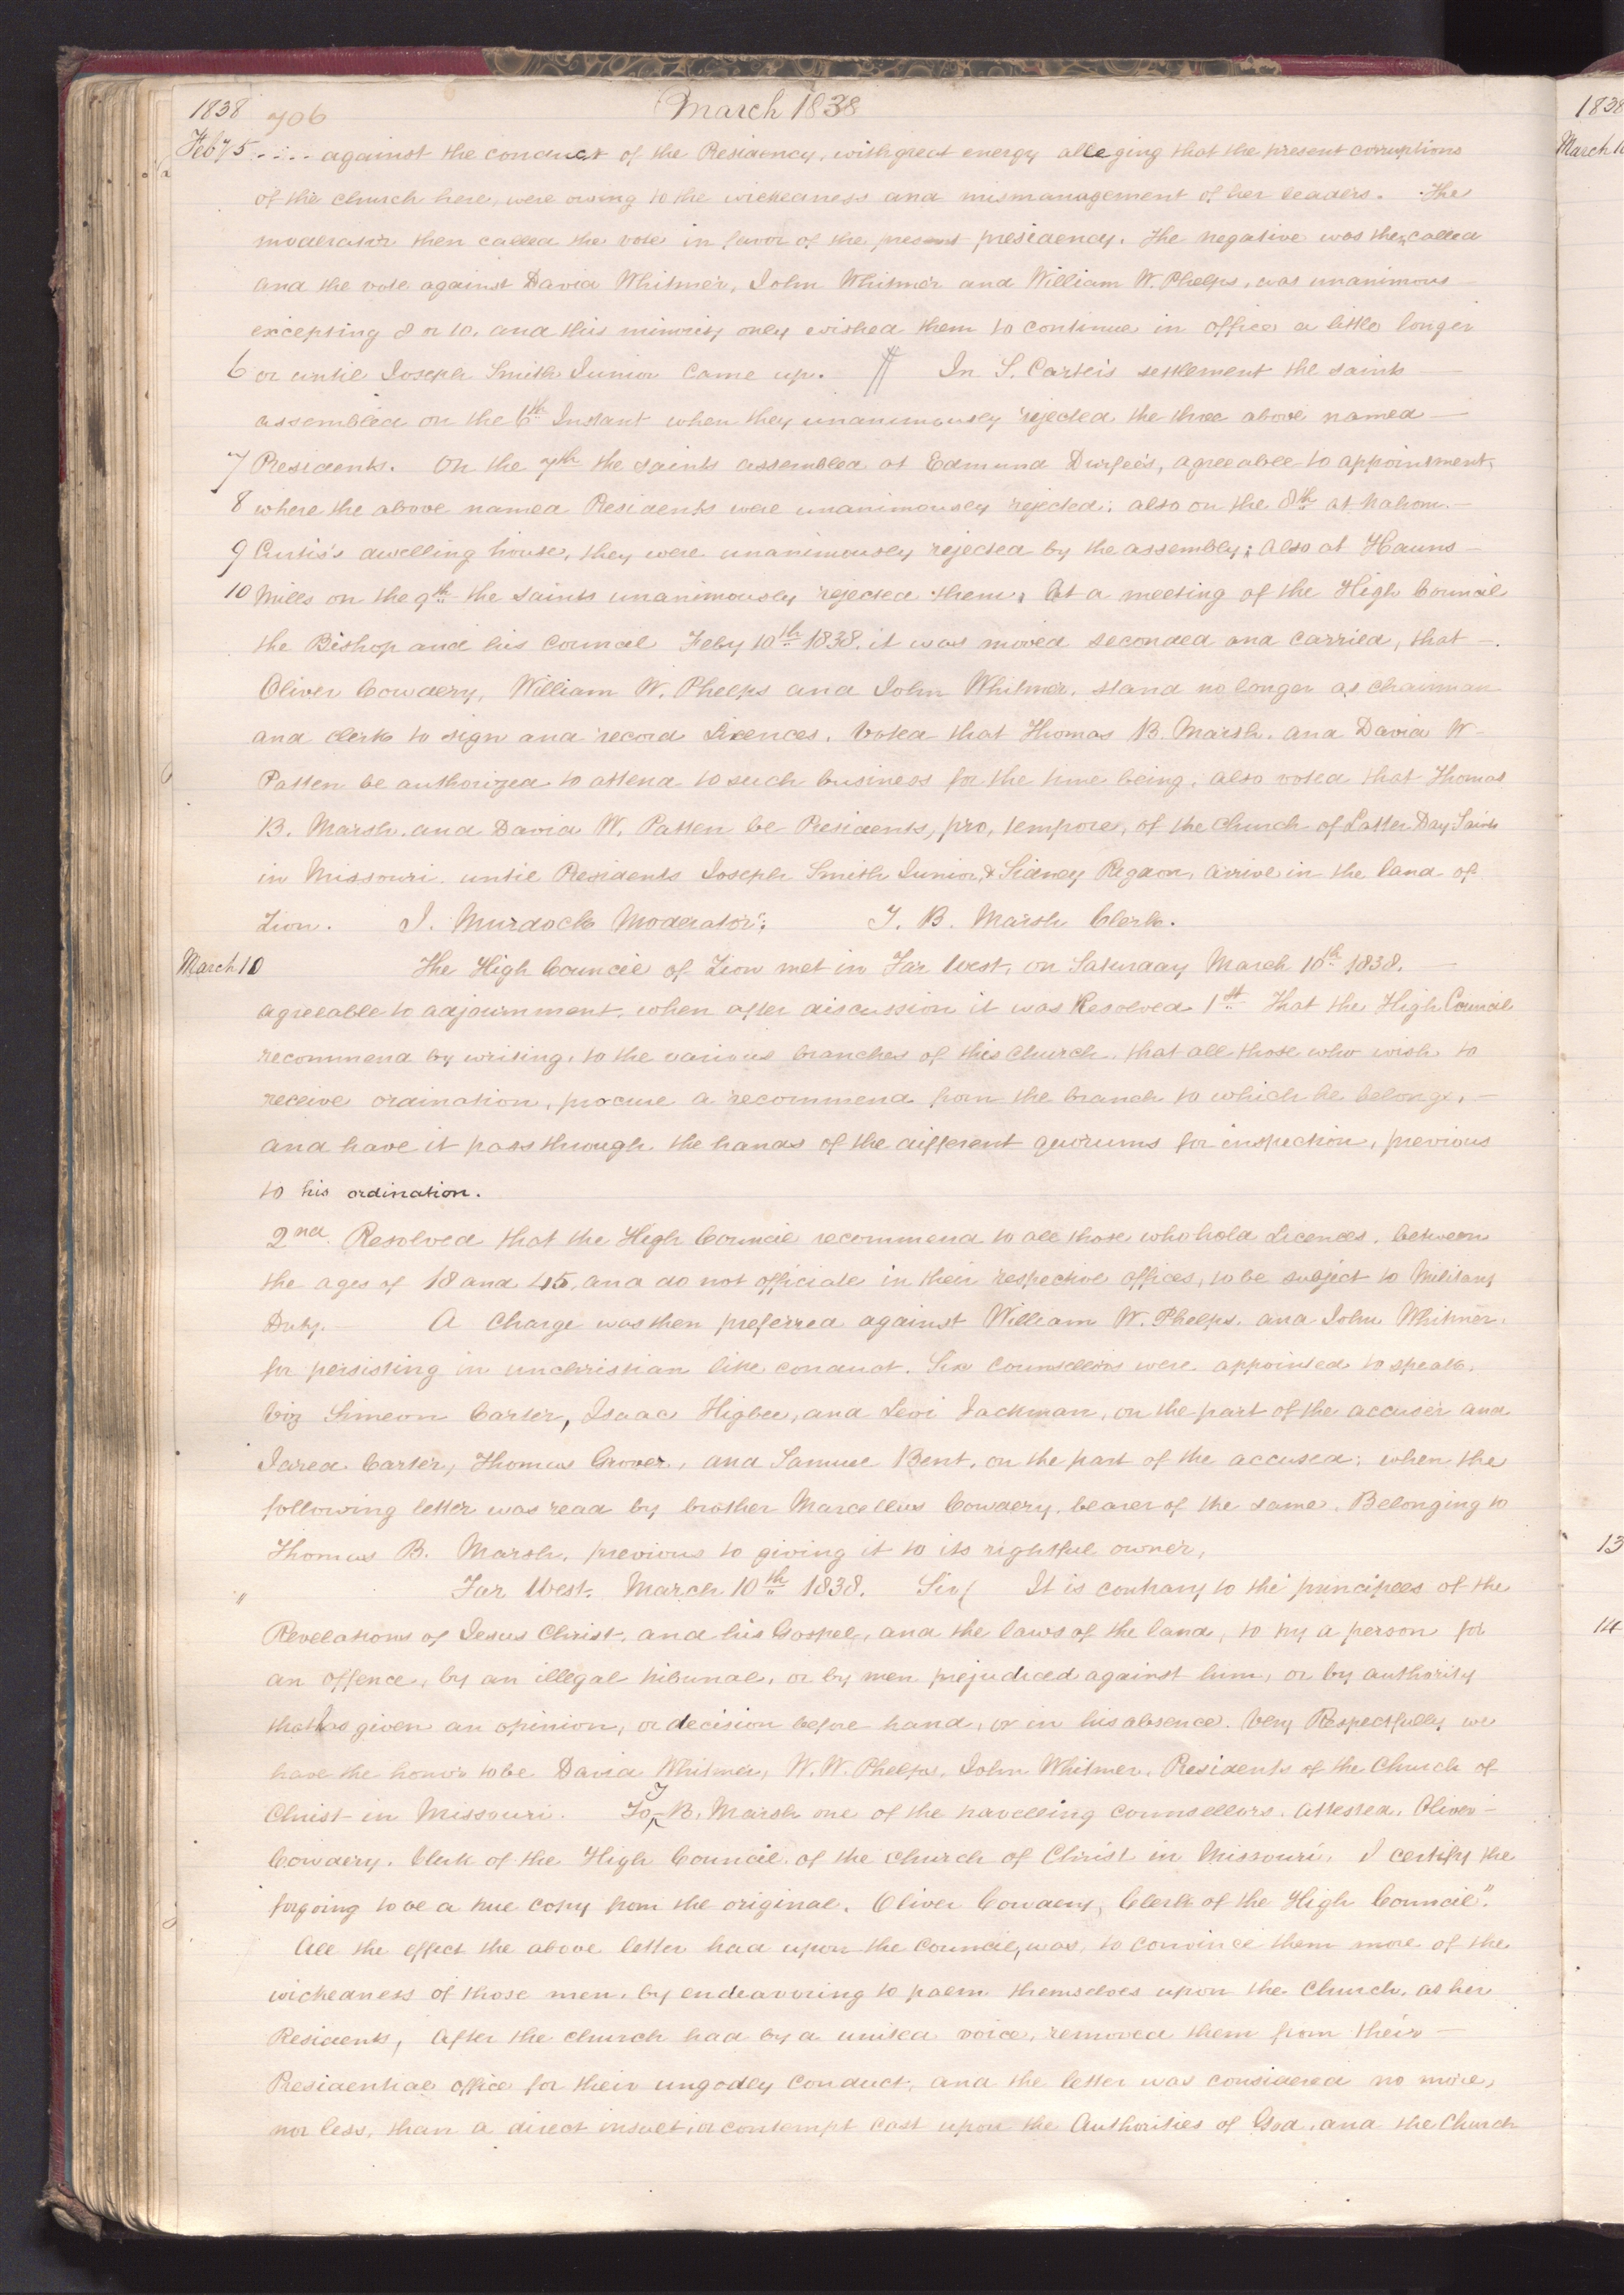 1838 706 March 1838
Feby 5 .... against the conduct of the Presidency, with great energy alleging that the present corruptions
of the church here, were owing to the wickedness and mismanagement of her leaders. The
moderator then called the vote in favor of the present presidency. The negative was then called
and the vote against David Whitmer, John Whitmer and William W. Phelps, was unanimous
excepting 8 or 10, and this minority only wished them to continue in office a little longer
6 or until Joseph Smith Junior came up. In S. Carter's settlement the saints
assembled on the 6th Instant when they unanimously rejected the three above named
7 Presidents. On the 7th the saints assembled at Edmund Durfee's, agreeable to appointment,
8 where the above named Presidents were unanimously rejected; also on the 8th at Nahom
9 Curtis's dwelling house, they were unanimously rejected by the assembly; also at Hauns
10 Mills on the 9th the saints unanimously rejected them, At a meeting of the High Council
the Bishop and his Council Feby 10th 1838. it was moved seconded and carried, that
Oliver Cowdery, William W. Phelps and John Whitmer, stand no longer as chairman
and clerk to sign and record Licences. Voted that Thomas B. Marsh, and David W
Patten be authorized to attend to such business for the time being. also voted that Thomas
B. Marsh, and David W. Patten be Presidents, pro, tempore, of the Church of Latter Day Saints
in Missouri. until Presidents Joseph Smith Junior, & Sidney Rigdon, arrive in the land of
Zion. J. Murdock Moderator; T. B. Marsh Clerk.
March 10 The High Council of Zion met in Far West, on Saturday March 10th 1838.
agreeable to adjournment. when after discussion it was Resolved 1st That the High Council
recommend by writing, to the various branches of this Church, that all those who wish to
receive ordination, procure a recommend from the branch to which he belongs,
and have it pass through the hands of the different quorums for inspection, previous
to his ordination.
2nd. Resolved that the High Council recommend to all those who hold Licences, between
the ages of 18 and 45, and do not officiate in their respective offices, to be subject to Military
Duty. A Charge was then preferred against William W. Phelps, and John Whitmer,
for persisting in unchristian like conduct. Six Counsellors were appointed to speak.
Viz Simeon Carter, Isaac Higbee, and Levi Jackman, on the part of the accuser and
Jared Carter, Thomas Grover, and Samuel Bent, on the part of the accused; when the
following letter was read by brother Marcellus Cowdery, bearer of the same, Belonging to
Thomas B. Marsh, previous to giving it to its rightful owner,
" Far West, March 10th 1838. Sir It is contrary to the principles of the
Revelations of Jesus Christ, and his Gospel, and the laws of the land, to try a person for
an offence, by an illegal tribunal, or by men prejudiced against him, or by authority
that has given an opinion, or decision before hand, or in his absence. Very Respectfully we
have the honor to be David Whitmer, W. W. Phelps, John Whitmer, Presidents of the Church of
Christ in Missouri. To T B. Marsh one of the travelling counsellors. Attested, Oliver
Cowdery. Clerk of the High Council of the Church of Christ in Missouri. I certify the
forgoing to be a true copy from the original. Oliver Cowdery, Clerk of the High Council."
All the effect the above letter had upon the Council, was, to convince them more of the
wickedness of those men, by endeavouring to palm themselves upon the Church, as her
Presidents, after the church had by a united voice, removed them from their
Presidential office for their ungodly conduct; and the letter was considered no more,
nor less, than a direct insult, or contempt cast upon the Authorities of God, and the Church
1838
March 10
13
14